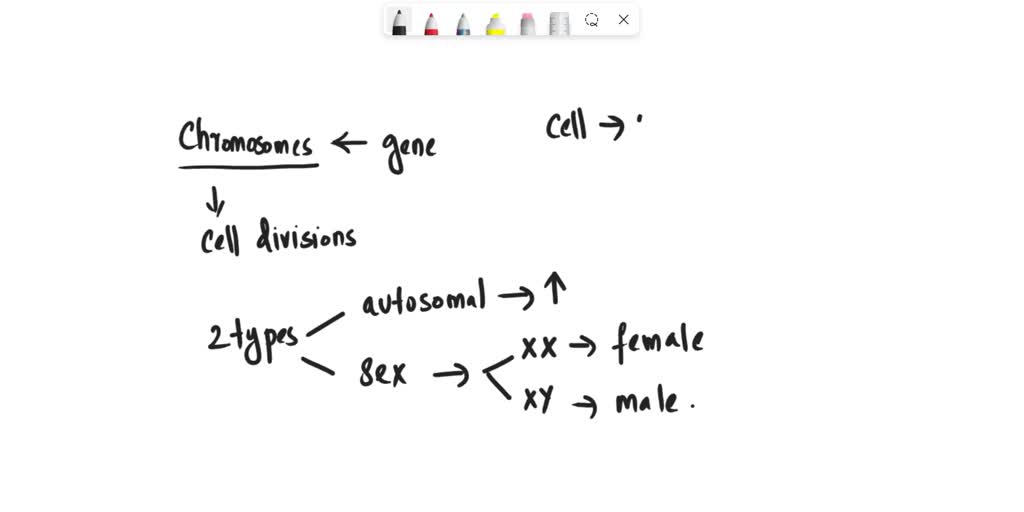 Chromosomes ← gene
cell → '
↓
cell divisions
2 types
autosomal → ↑
sex →
XX → female
XY → male.